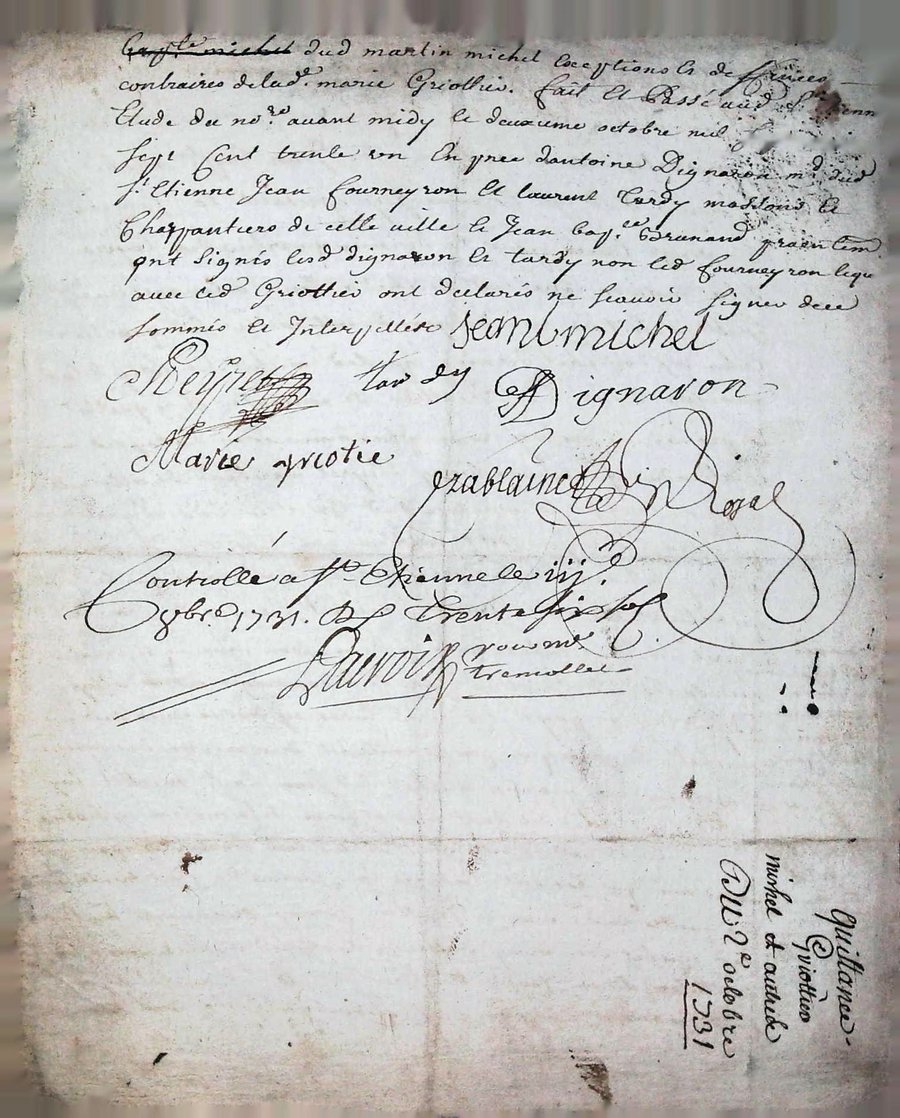 dud martin michel exceptions et de
contraires de lad.e marie Griottier. fait et Passé aud S.t
Etude du no.re avant midy le deuxieme octobre mil
sept Cent trente un En pnce d'antoine Dignaron m.d dud
S.t Etienne Jean fourneyron et laurent tardy massons et
Charpantiers de cette ville et Jean bap.te Brunand
qnt signés lesd dignaron et tardy non led fourneyron
avec led Griottier ont declarés ne scavoir signer de ce
sommés et Interpellés Jean michel
Peyret tardy Dignaron
Marie griotie
Controllé a St. Etienne le iij.
8bre 1731. R Trente six sols
tremollet
Quittance
Griottier
michel et autres
Du 2e octobre
1731